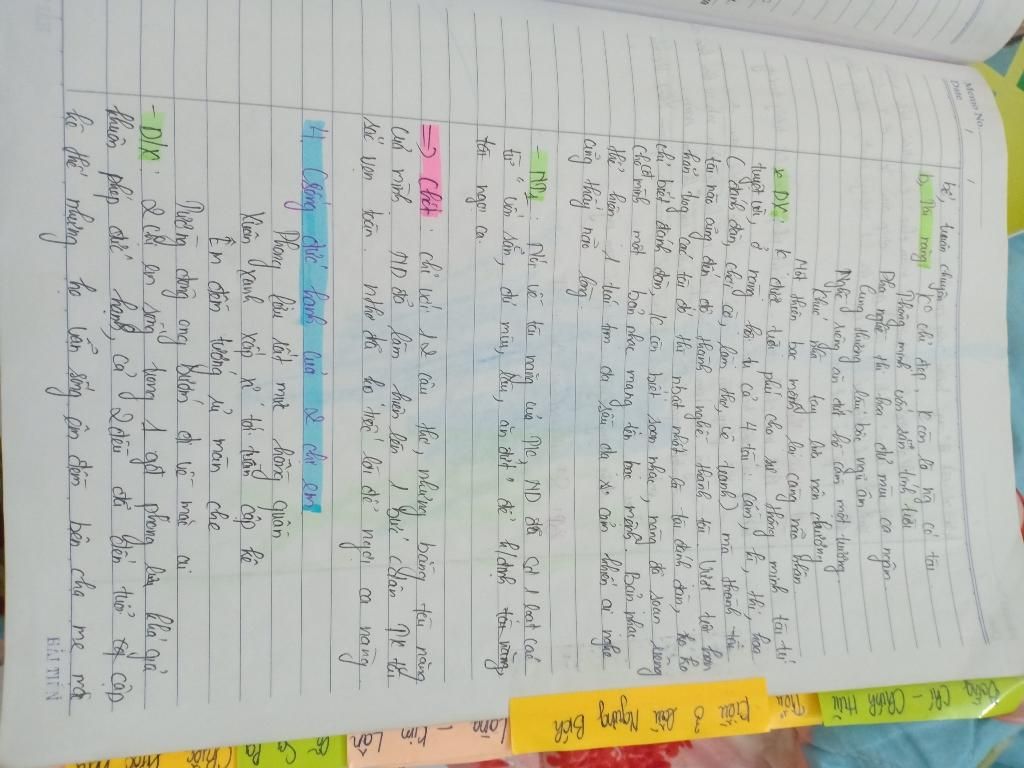 Memo No.
Date / /
kể, luân chuyển
b, Tài năng K o chỉ đẹp, K còn là ng có tài
Thông minh vốn sẵn tính trời
Pha nghề thi họa đủ mùi ca ngâm
Cung thương lầu bậc ngũ âm
Nghề riêng ăn đứt hồ cầm một trương
Khúc nhà tay lựa nên chương
Một thiên bạc mệnh lại càng não nhân
K DV: K được trời phú cho sự thông minh tài trí
tuyệt vời, ở nàng hội tụ cả 4 tài: cầm, kì, thi, họa
(đánh đàn, chơi cờ, làm thơ, vẽ tranh) mà tài
nào cũng đến độ thành nghề thành tài. Vượt trội hơn
hẳn trong các tài đó thì nhất là tài đánh đàn, ko
chỉ biết đánh đàn, K còn biết soạn nhạc, nàng đã soạn riêng
cho mình một bản nhạc mang tên bạc mệnh. Bản nhạc
thể hiện 1 trái tim đa sầu đa cảm khiến ai nghe
cũng thấy não lòng
- ND: Nói về tài năng của TK, ND đã sd 1 loạt các
từ "vốn sẵn, đủ mùi, lầu, ăn đứt" để k/định tài năng,
tài ngợi ca.
=> Chốt: chỉ với 12 câu thơ, nhưng bằng tài năng
của mình ND đã làm hiện lên 1 bức chân TK tài
sắc vẹn toàn. Nhà thơ đã ko tiếc lời để ngợi ca nàng
4. Cuộc sống đức hạnh của 2 chị em
Phong lưu rất mực hồng quần
Xuân xanh xấp xỉ tới tuần cập kê
Êm đềm trướng rủ màn che
Tường đông ong bướm đi về mặc ai
- D/c: 2 chị em sống trong 1 gđ phong lưu khá giả
khuôn phép đức hạnh, cả 2 đều đã đến tuổi cập
kê thế nhưng họ vẫn sống êm đềm bên cha mẹ mà
HẢI TIẾN
Đồng Chí - Chính Hữu
Kiều ở lầu Ngưng Bích
Làng - Kim Lân